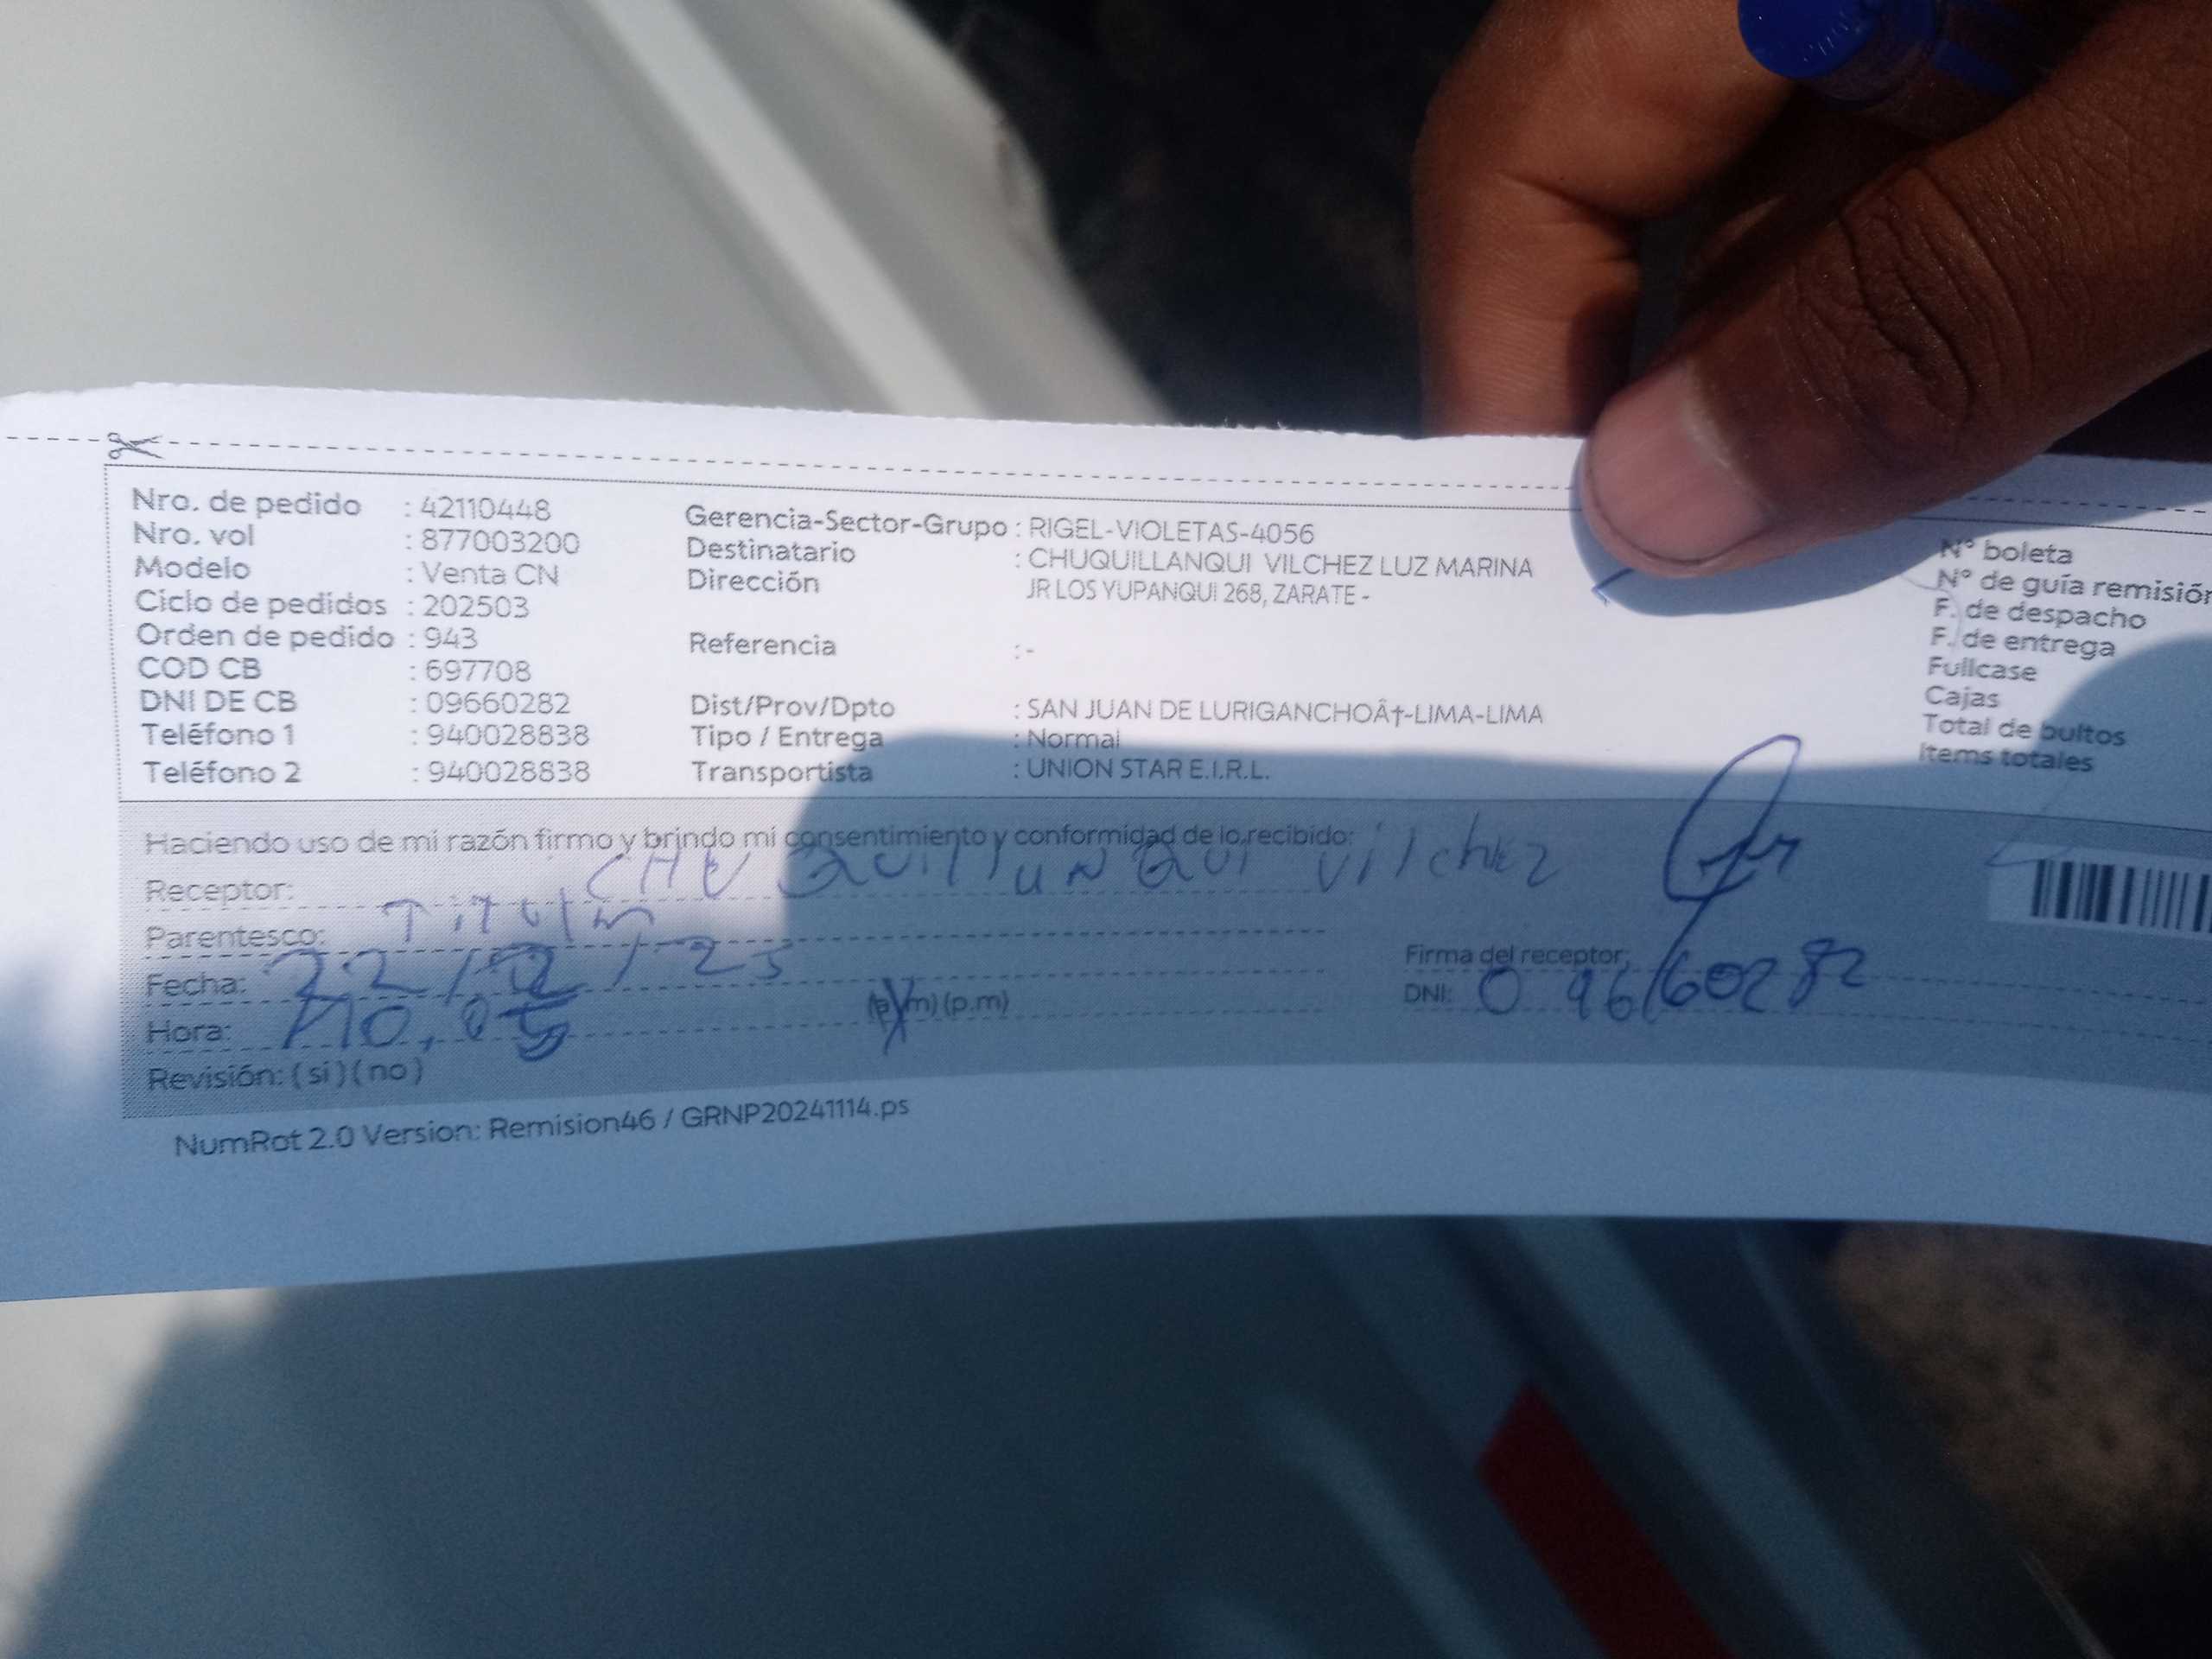 Nro. de pedido : 42110448
Nro. vol : 877003200
Modelo : Venta CN
Ciclo de pedidos : 202503
Orden de pedido : 943
COD CB : 697708
DNI DE CB : 09660282
Teléfono 1 : 940028838
Teléfono 2 : 940028838
Gerencia-Sector-Grupo : RIGEL-VIOLETAS-4056
Destinatario : CHUQUILLANQUI VILCHEZ LUZ MARINA
Dirección JR LOS YUPANQUI 268, ZARATE -
Referencia : -
Dist/Prov/Dpto : SAN JUAN DE LURIGANCHOÂ†-LIMA-LIMA
Tipo / Entrega : Normal
Transportista : UNION STAR E.I.R.L.
N° boleta
N° de guía remisión
F. de despacho
F. de entrega
Fullcase
Cajas
Total de bultos
Items totales
Haciendo uso de mi razón firmo y brindo mi consentimiento y conformidad de lo recibido:
Receptor: Vilchez
Parentesco:
Fecha: 22/2/25
Hora: (a.m) (p.m)
Revisión: ( si ) ( no )
Firma del receptor:
DNI: 09660282
NumRot 2.0 Version: Remision46 / GRNP20241114.ps